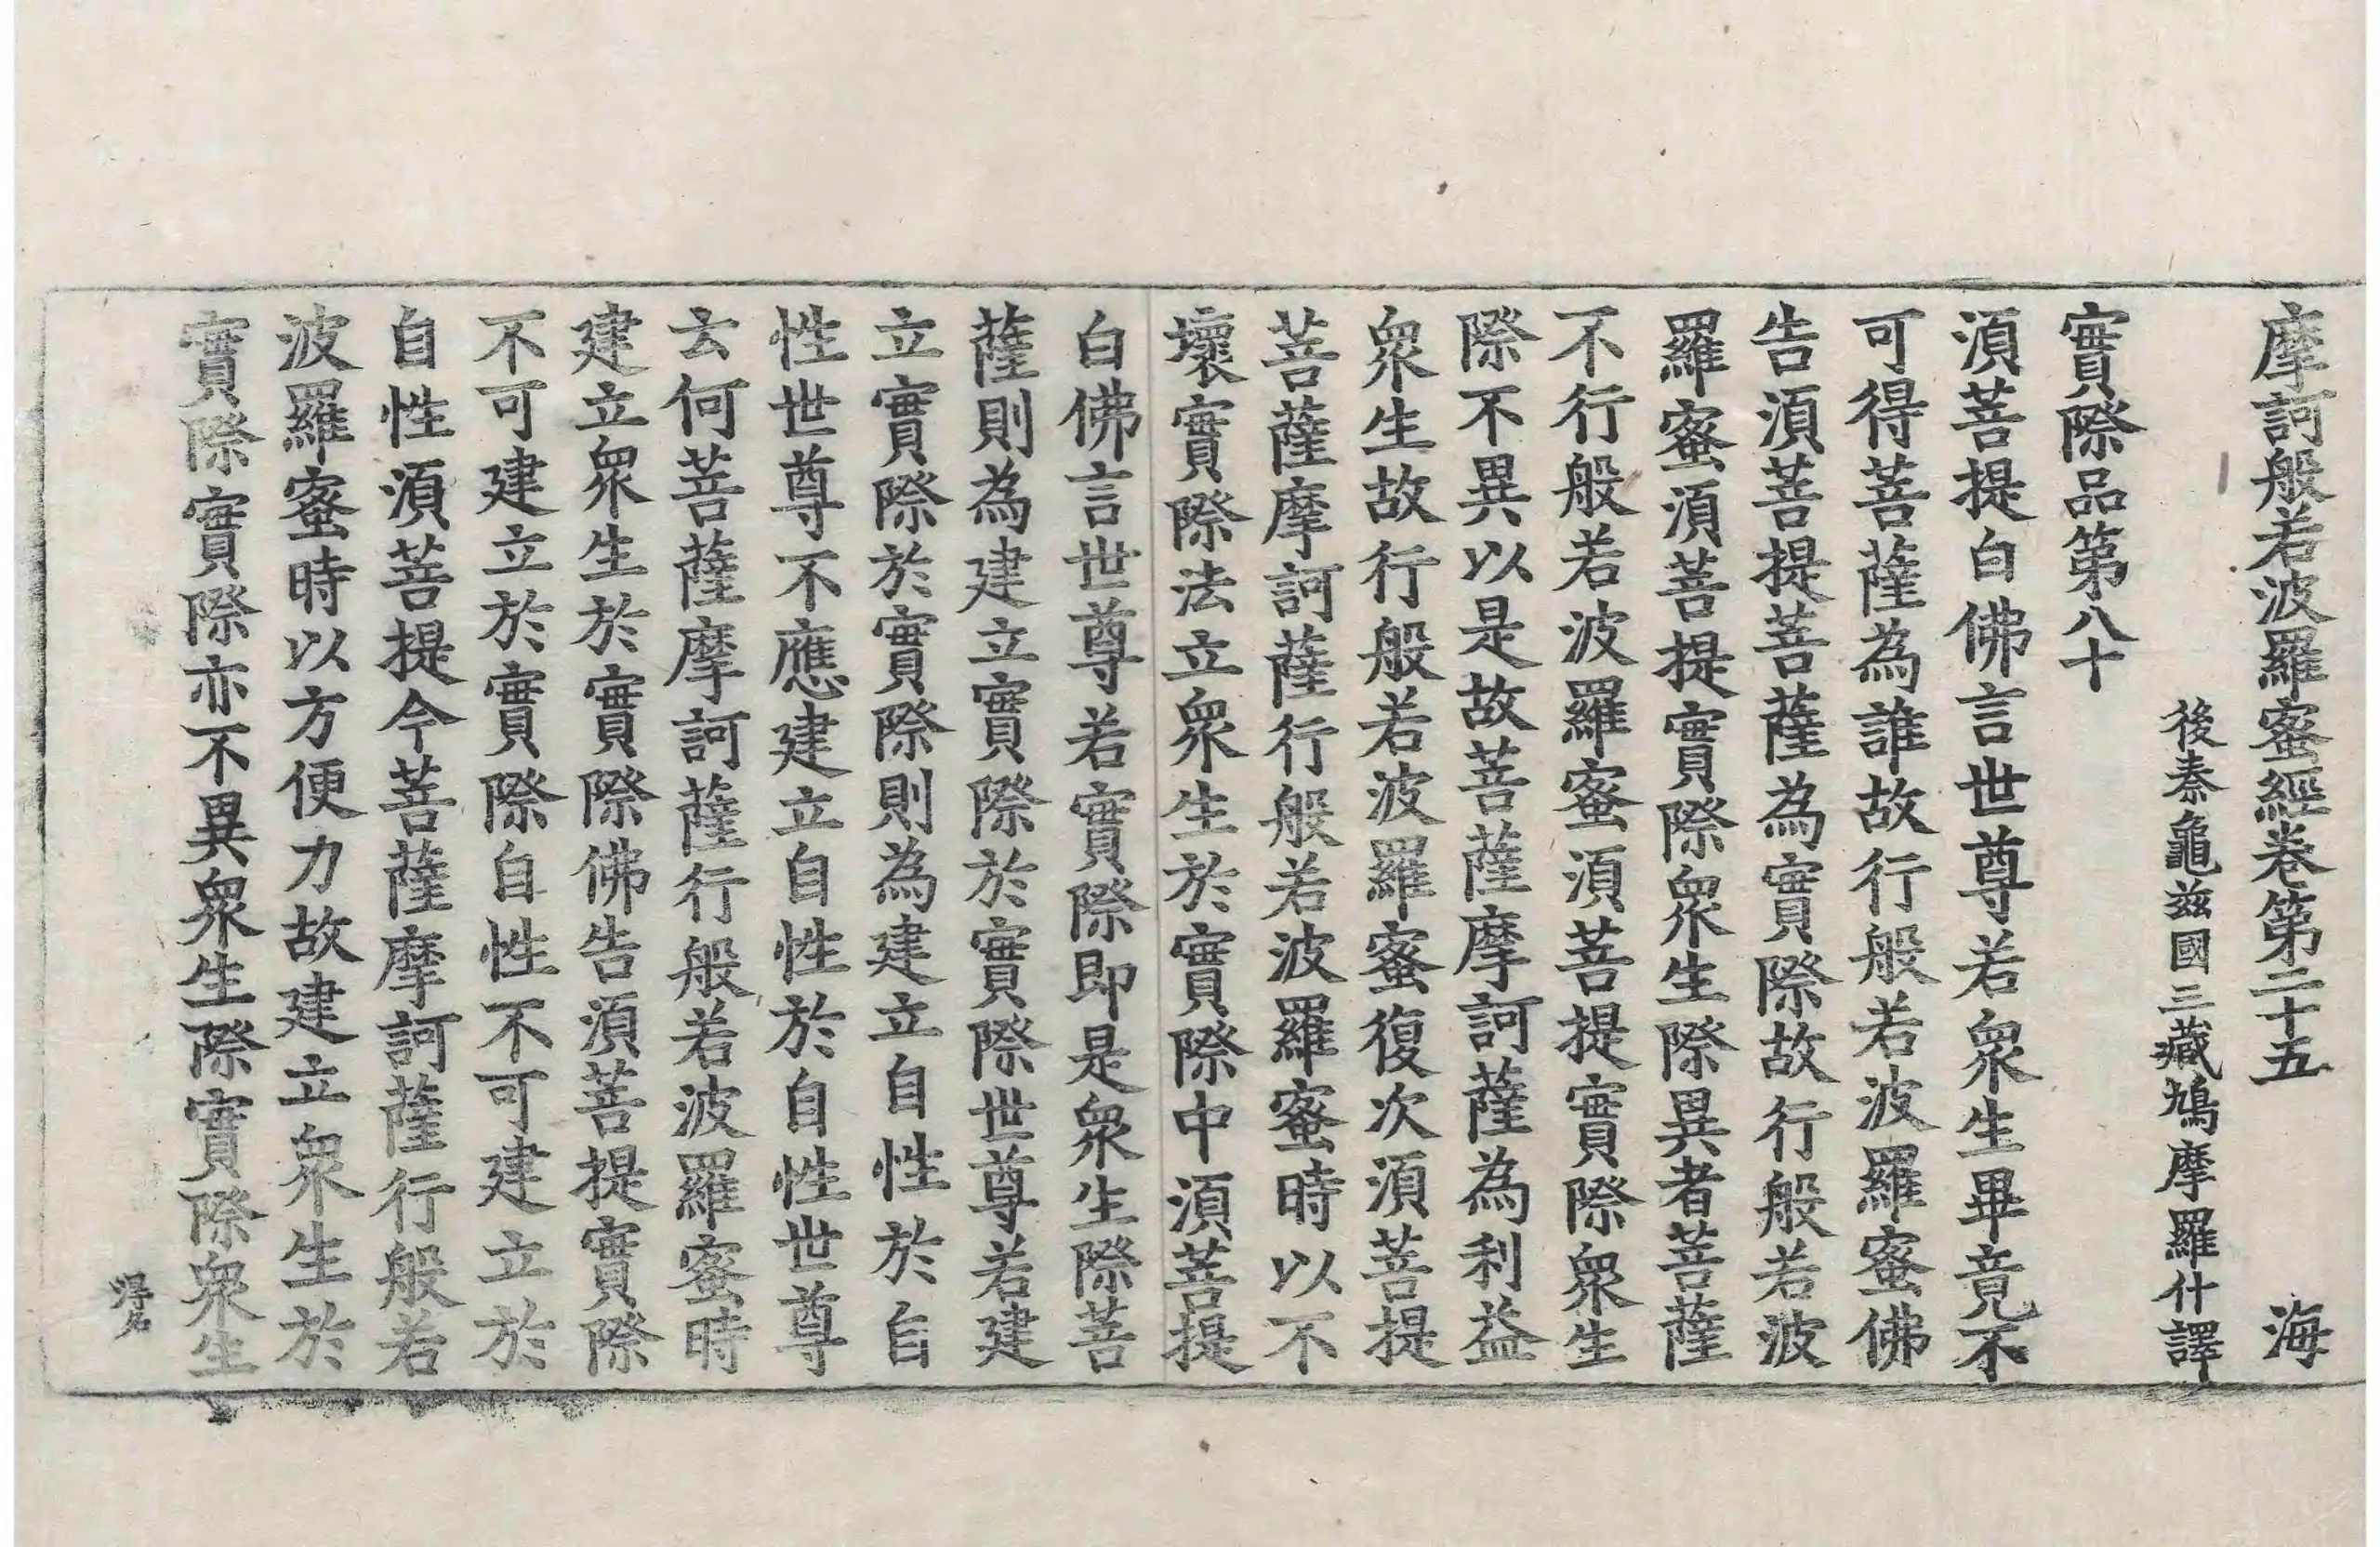 摩訶般若波羅蜜經卷第二十五 海
後秦龜茲國三藏鳩摩羅什譯
實際品第八十
須菩提白佛言世尊若衆生畢竟不
可得菩薩為誰故行般若波羅蜜佛
告須菩提菩薩為實際故行般若波
羅蜜須菩提實際衆生際異者菩薩
不行般若波羅蜜須菩提實際衆生
際不異以是故菩薩摩訶薩為利益
衆生故行般若波羅蜜復次須菩提
菩薩摩訶薩行般若波羅蜜時以不
壞實際法立衆生於實際中須菩提
白佛言世尊若實際即是衆生際菩
薩則為建立實際於實際世尊若建
立實際於實際則為建立自性於自
性世尊不應建立自性於自性世尊
云何菩薩摩訶薩行般若波羅蜜時
建立衆生於實際佛告須菩提實際
不可建立於實際自性不可建立於
自性須菩提今菩薩摩訶薩行般若
波羅蜜時以方便力故建立衆生於
實際實際亦不異衆生際實際衆生